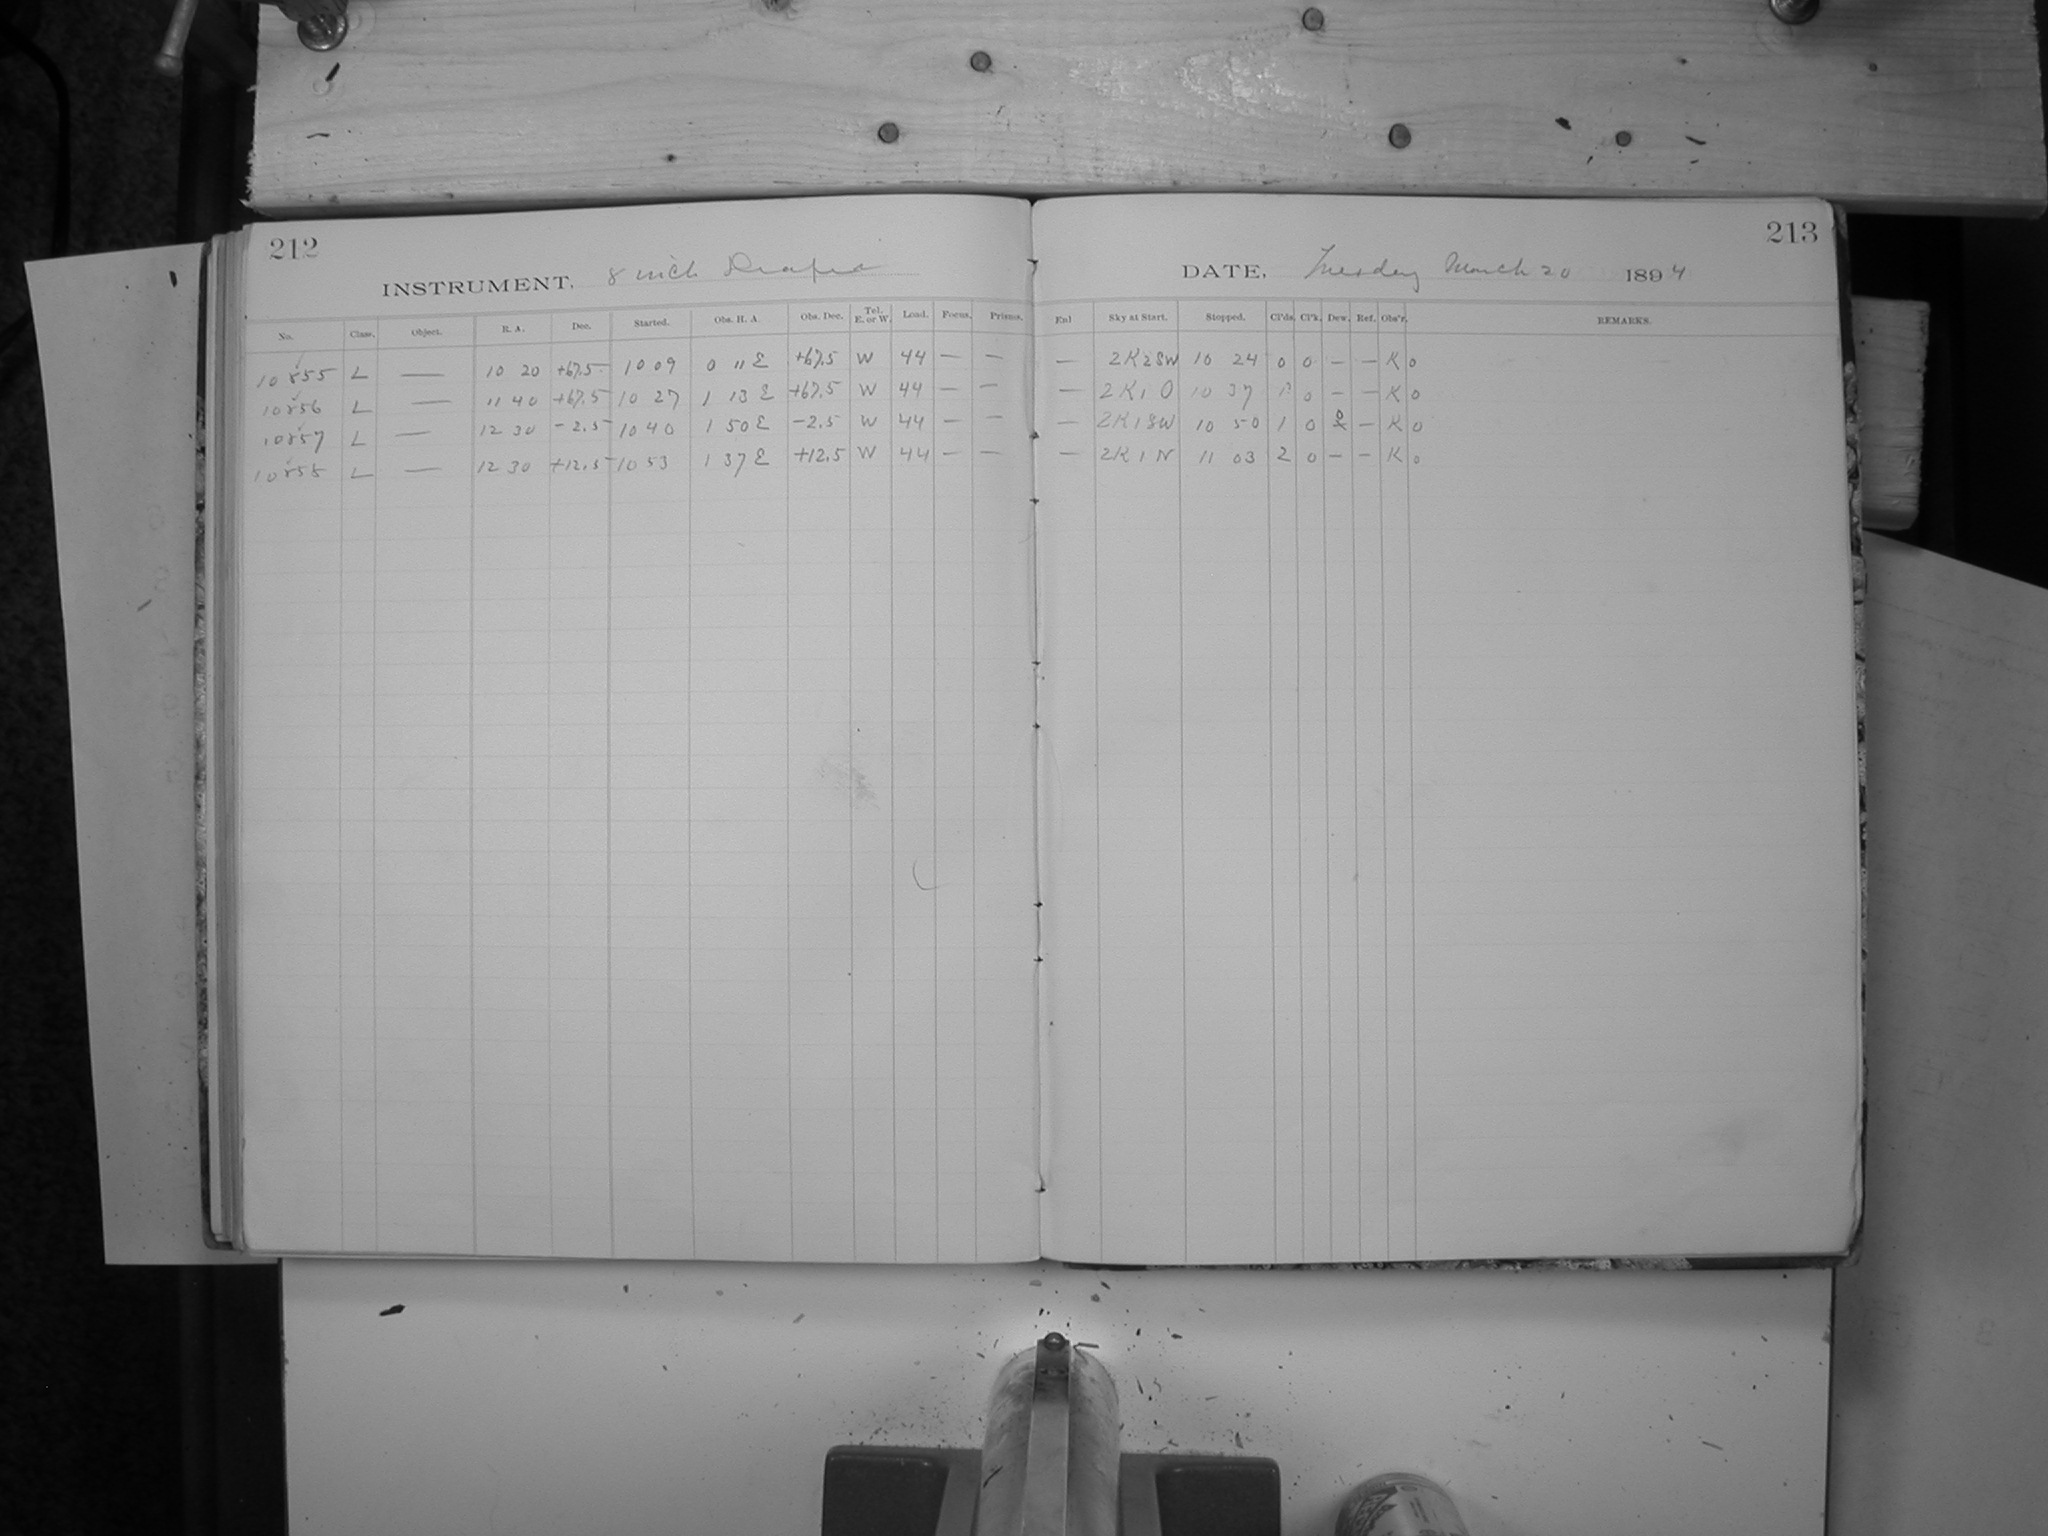 212
INSTRUMENT, 8 inch Draper
No. Class. Object. R. A. Dec. Started. Obs. H. A. Obs. Dec. Tel. E. or W. Load. Focus. Prisms.
10855 L — 10 20 +67.5 10 09 0 11 E +67.5 W 44 — —
10856 L — 11 40 +67.5 10 27 1 13 E +67.5 W 44 — —
10857 L — 12 30 -2.5 10 40 1 50 E -2.5 W 44 — —
10858 L — 12 30 +12.5 10 53 1 37 E +12.5 W 44 — —
213
DATE, Tuesday March 20 1894
Enl Sky at Start. Stopped. Cl'ds. Cl'k. Dew. Ref. Obs'r. REMARKS.
— 2K2SW 10 24 0 0 — — K 0
— 2K1 0 10 37 0 — — K 0
— 2K1SW 10 50 1 0 — K 0
— 2K1N 11 03 2 0 — — K 0